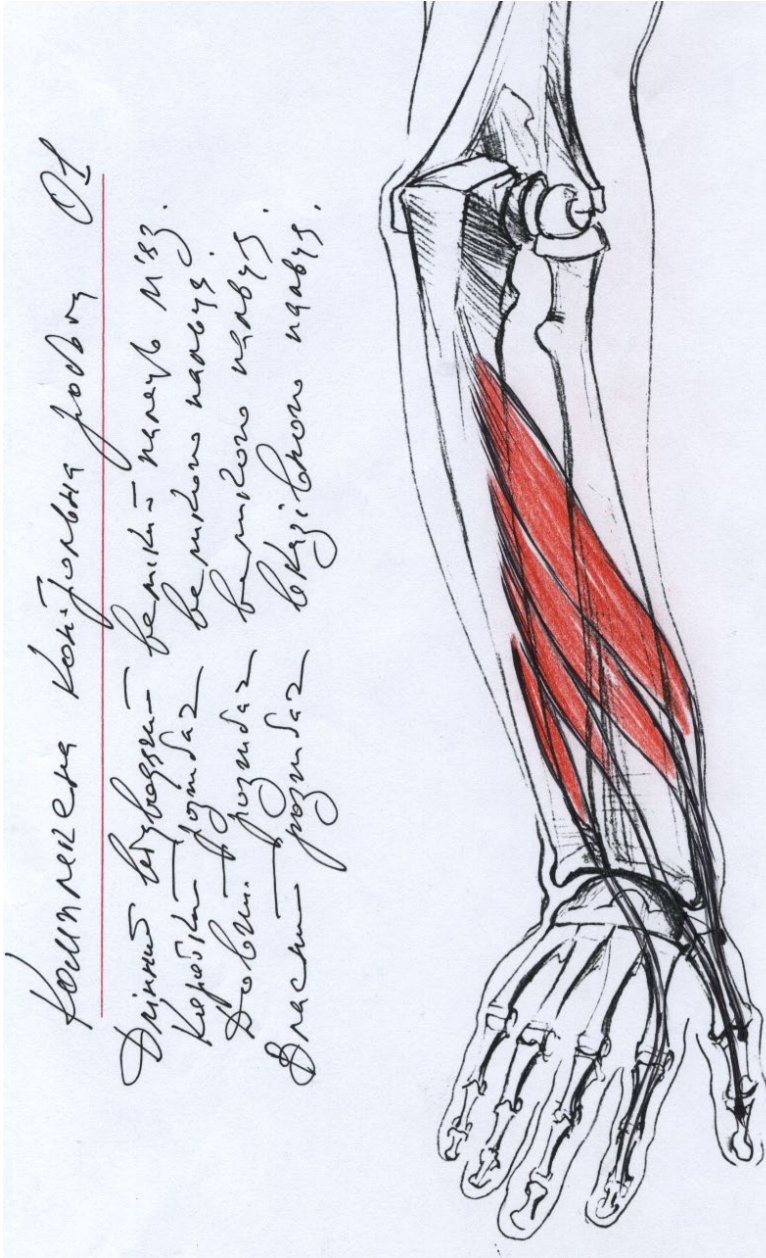 Комплексна контрольна робота 01
Длінний відводящій великий палець м'яз.
Короткий розгибач великого пальця.
Довгий розгибач великого пальця.
Власний розгибач вказівного пальця.